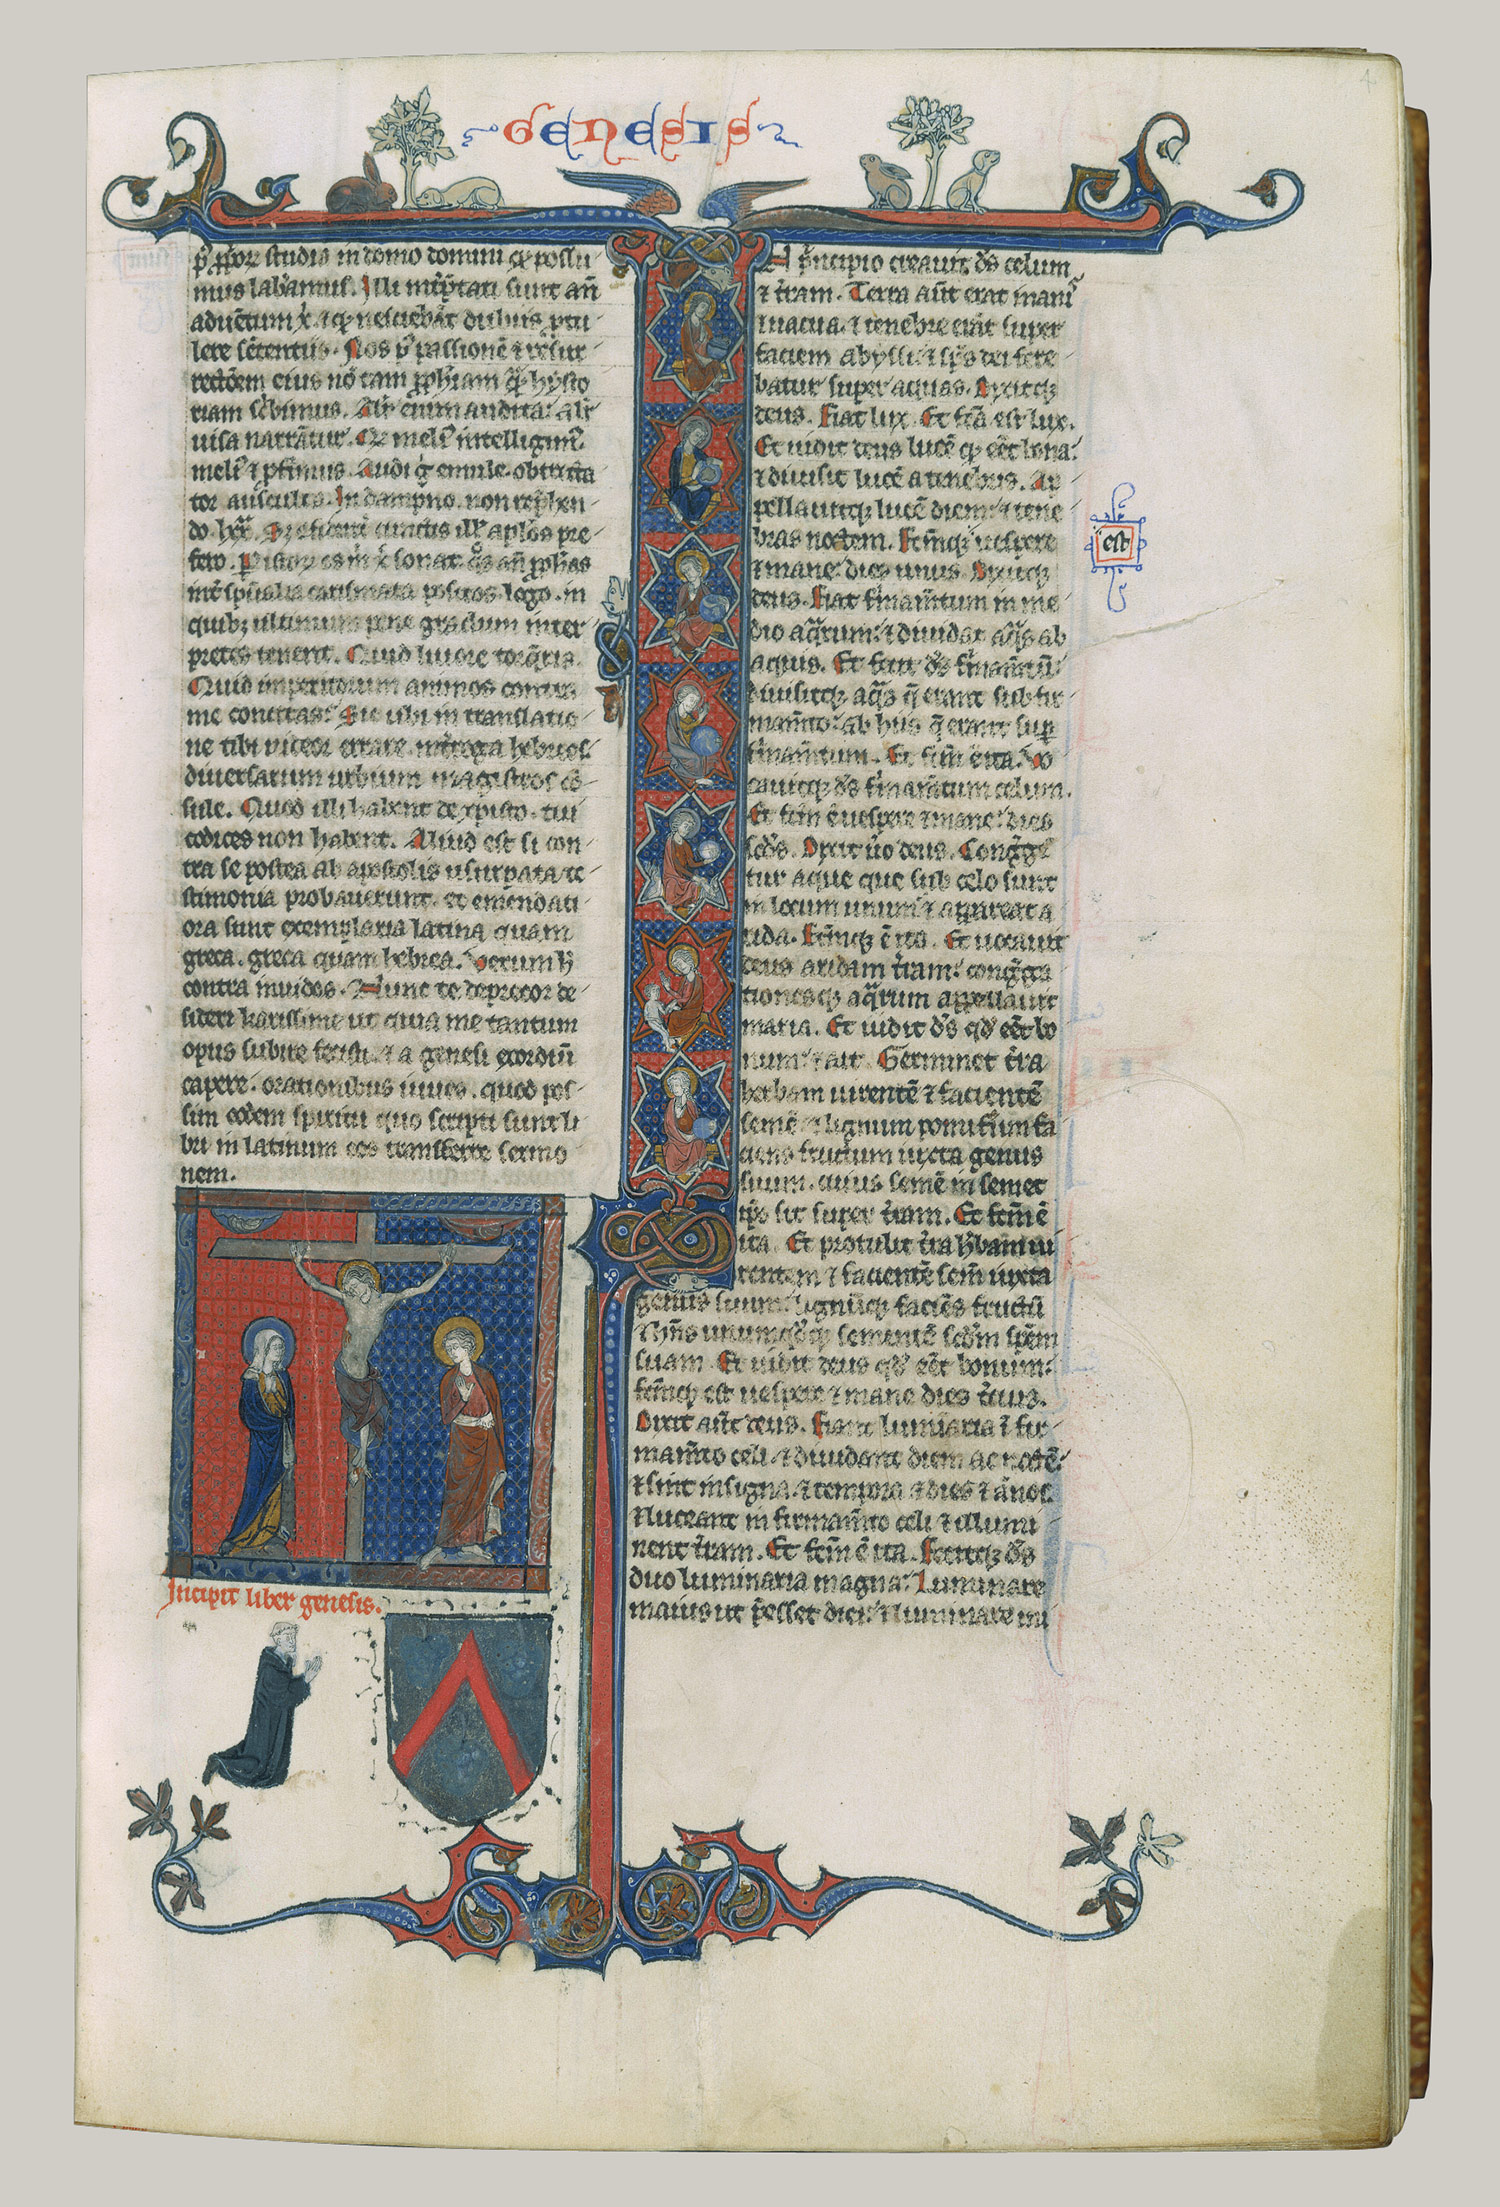 4
GENESIS
studio in domo domini q possu
mus labamus. Illi int̾p̃tati sunt añ
aduẽtum xp̃i
lere sẽtentiis. Nos p̾ passionẽ ⁊ resur
rectõem eius nõ tam ꝓph̾iam q̃ hysto
riam sc̾bimus. Alit̾ enim audita: alit̾
uisa narrãtur.
meli̾ ⁊ pferimus. Audi g̾ emule. obtrecta
tor ausculta. In dampno. non rep̾hen
do
int̾ sp̃ualia carismata positos lego. in
quibꝫ ultimum pene gradum inter
pretes tenent. Quid liuore torq̾ris.
Quid imperitorum animos contra
me concitas. Sic ubi in translatio
ne tibi uideor errare. int̾roga hebreos.
diuersarum urbium magistros cõ
sule. Quod illi habent de xp̃isto. tui
codices non habent. Aliud est si con
tra se postea ab apostolis usurpata te
stimonia probauerunt. et emendati
ora sunt exemplaria latina quam
greca. greca quam hebrea. Verum h̾
contra inuidos. Nunc te deprecor de
sideri karissime ut quia me tantum
opus subire fecisti. ⁊ a genesi exordiũ
capere. orationibus iuues. quod pos
sim eodem spiritu quo scripti sunt li
bri in latinum eos transferre sermo
nem.
Incipit liber genesis.
p̾ncipio creauit d̾s celum
⁊ t̾ram. Terra aũt erat inanis
⁊ uacua. ⁊ tenebre erãt super
faciem abyssi. ⁊ sp̃s dei fere
batur super aquas. Dixitqꝫ
deus. Fiat lux. Et fc̃a est lux.
Et uidit deus lucẽ q̾ eẽt bona:
⁊ diuisit lucẽ a tenebris. Ap
pellauitqꝫ lucẽ diem: ⁊ tene
bras noctem. Fc̃mqꝫ uespere
est
⁊ mane: dies unus. Dixitqꝫ
deus. Fiat firmam̃tum in me
dio aq̾rum: ⁊ diuidat aq̾s ab
aquis. Et fecit d̾s firmam̃tũ:
diuisitqꝫ aq̾s q̾ erant sub fir
mam̃to: ab hiis q̾ erant sup̾
firmam̃tum. Et fc̃m ẽ ita. Vo
cauitqꝫ d̾s firmam̃tum celum.
Et fc̃m ẽ uespere ⁊ mane: dies
sc̃ds. Dixit ũo deus. Congrege
tur aque que sub celo sunt
in locum unum: ⁊ appareat a
rida. Fc̃mqꝫ ẽ ita. Et uocauit
deus aridam t̾ram: congrega
tionesqꝫ aq̾rum appellauit
maria. Et uidit d̾s qd̾ eẽt bo
num: ⁊ ait. Germinet t̾ra
herbam uirentẽ ⁊ facientẽ
semẽ: ⁊ lignum pomiferum fa
ciens fructum iuxta genus
suum. cuius semẽ in semet
ip̃o sit super t̾ram. Et fc̃m ẽ
ita. Et protulit t̾ra h̾bam ui
rentem ⁊ facientẽ sem̃ iuxta
genus suum: lignũqꝫ faciẽs fructũ
⁊ hñs unumqd̾qꝫ sementẽ sc̃dm spẽm
suam. Et uidit deus qd̾ eẽt bonum:
fc̃mqꝫ est uespere ⁊ mane dies t̾cius.
Dixit aũt deus. Fiant luminaria ĩ fir
mam̃to celi. ⁊ diuidant diem ac noctẽ:
⁊ sint in signa. ⁊ tempora ⁊ dies ⁊ ãnos.
⁊ luceant in firmam̃to celi ⁊ illumi
nent t̾ram. Et fc̃m ẽ ita. Fecitqꝫ d̾s
duo luminaria magna: Luminare
maius ut p̾esset diei: ⁊ luminare mi